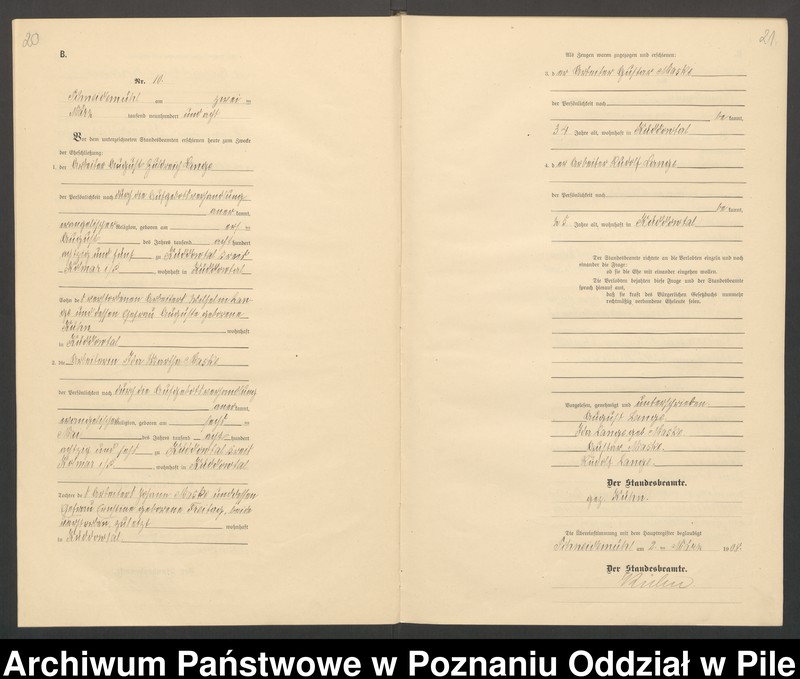 20
B.
Nr. 10.
Schneidemühl am zwei ten
März tausend neunhundert und acht
Vor dem unterzeichneten Standesbeamten erschienen heute zum Zwecke
der Eheschließung:
1. der Arbeiter August Lange
der Persönlichkeit nach durch die Aufgebotsverhandlung
anerkannt,
evangelischer Religion, geboren am ten
August des Jahres tausend acht hundert
achtzig und fünf zu Küddowtal Kreis
Kolmar i/P, wohnhaft in Küddowtal
Sohn des verstorbenen Arbeiters Wilhelm Lan-
ge und dessen Ehefrau Auguste geborene
Kühn wohnhaft
in Küddowtal
2. die Arbeiterin Ida Martha Maske
der Persönlichkeit nach durch die Aufgebotsverhandlung
anerkannt,
evangelischer Religion, geboren am ten
Mai des Jahres tausend acht hundert
achtzig und acht zu Küddowtal Kreis
Kolmar i/P, wohnhaft in Küddowtal
Tochter des Arbeiters Johann Maske und dessen
Ehefrau geborene Freitag, beide
verstorben, zuletzt wohnhaft
in Küddowtal
21.
Als Zeugen waren zugezogen und erschienen:
3. der Arbeiter Gustav Maske
der Persönlichkeit nach
bekannt,
34 Jahre alt, wohnhaft in Küddowtal
4. der Arbeiter Rudolf Lange
der Persönlichkeit nach
bekannt,
Jahre alt, wohnhaft in Küddowtal
Der Standesbeamte richtete an die Verlobten einzeln und nach
einander die Frage:
ob sie die Ehe mit einander eingehen wollen.
Die Verlobten bejahten diese Frage und der Standesbeamte
sprach hierauf aus,
daß sie kraft des Bürgerlichen Gesetzbuchs nunmehr
rechtmäßig verbundene Eheleute seien.
Vorgelesen, genehmigt und unterschrieben
August Lange.
Ida Lange geb. Maske
Gustav Maske.
Rudolf Lange.
Der Standesbeamte.
gez. Kühn.
Die Übereinstimmung mit dem Hauptregister beglaubigt
Schneidemühl am 2. ten März 1908.
Der Standesbeamte.
Kühn
Archiwum Państwowe w Poznaniu Oddział w Pile